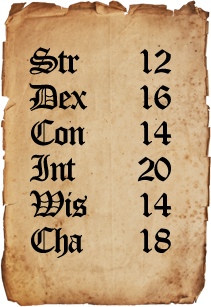 Str 12
Dex 16
Con 14
Int 20
Wis 14
Cha 18